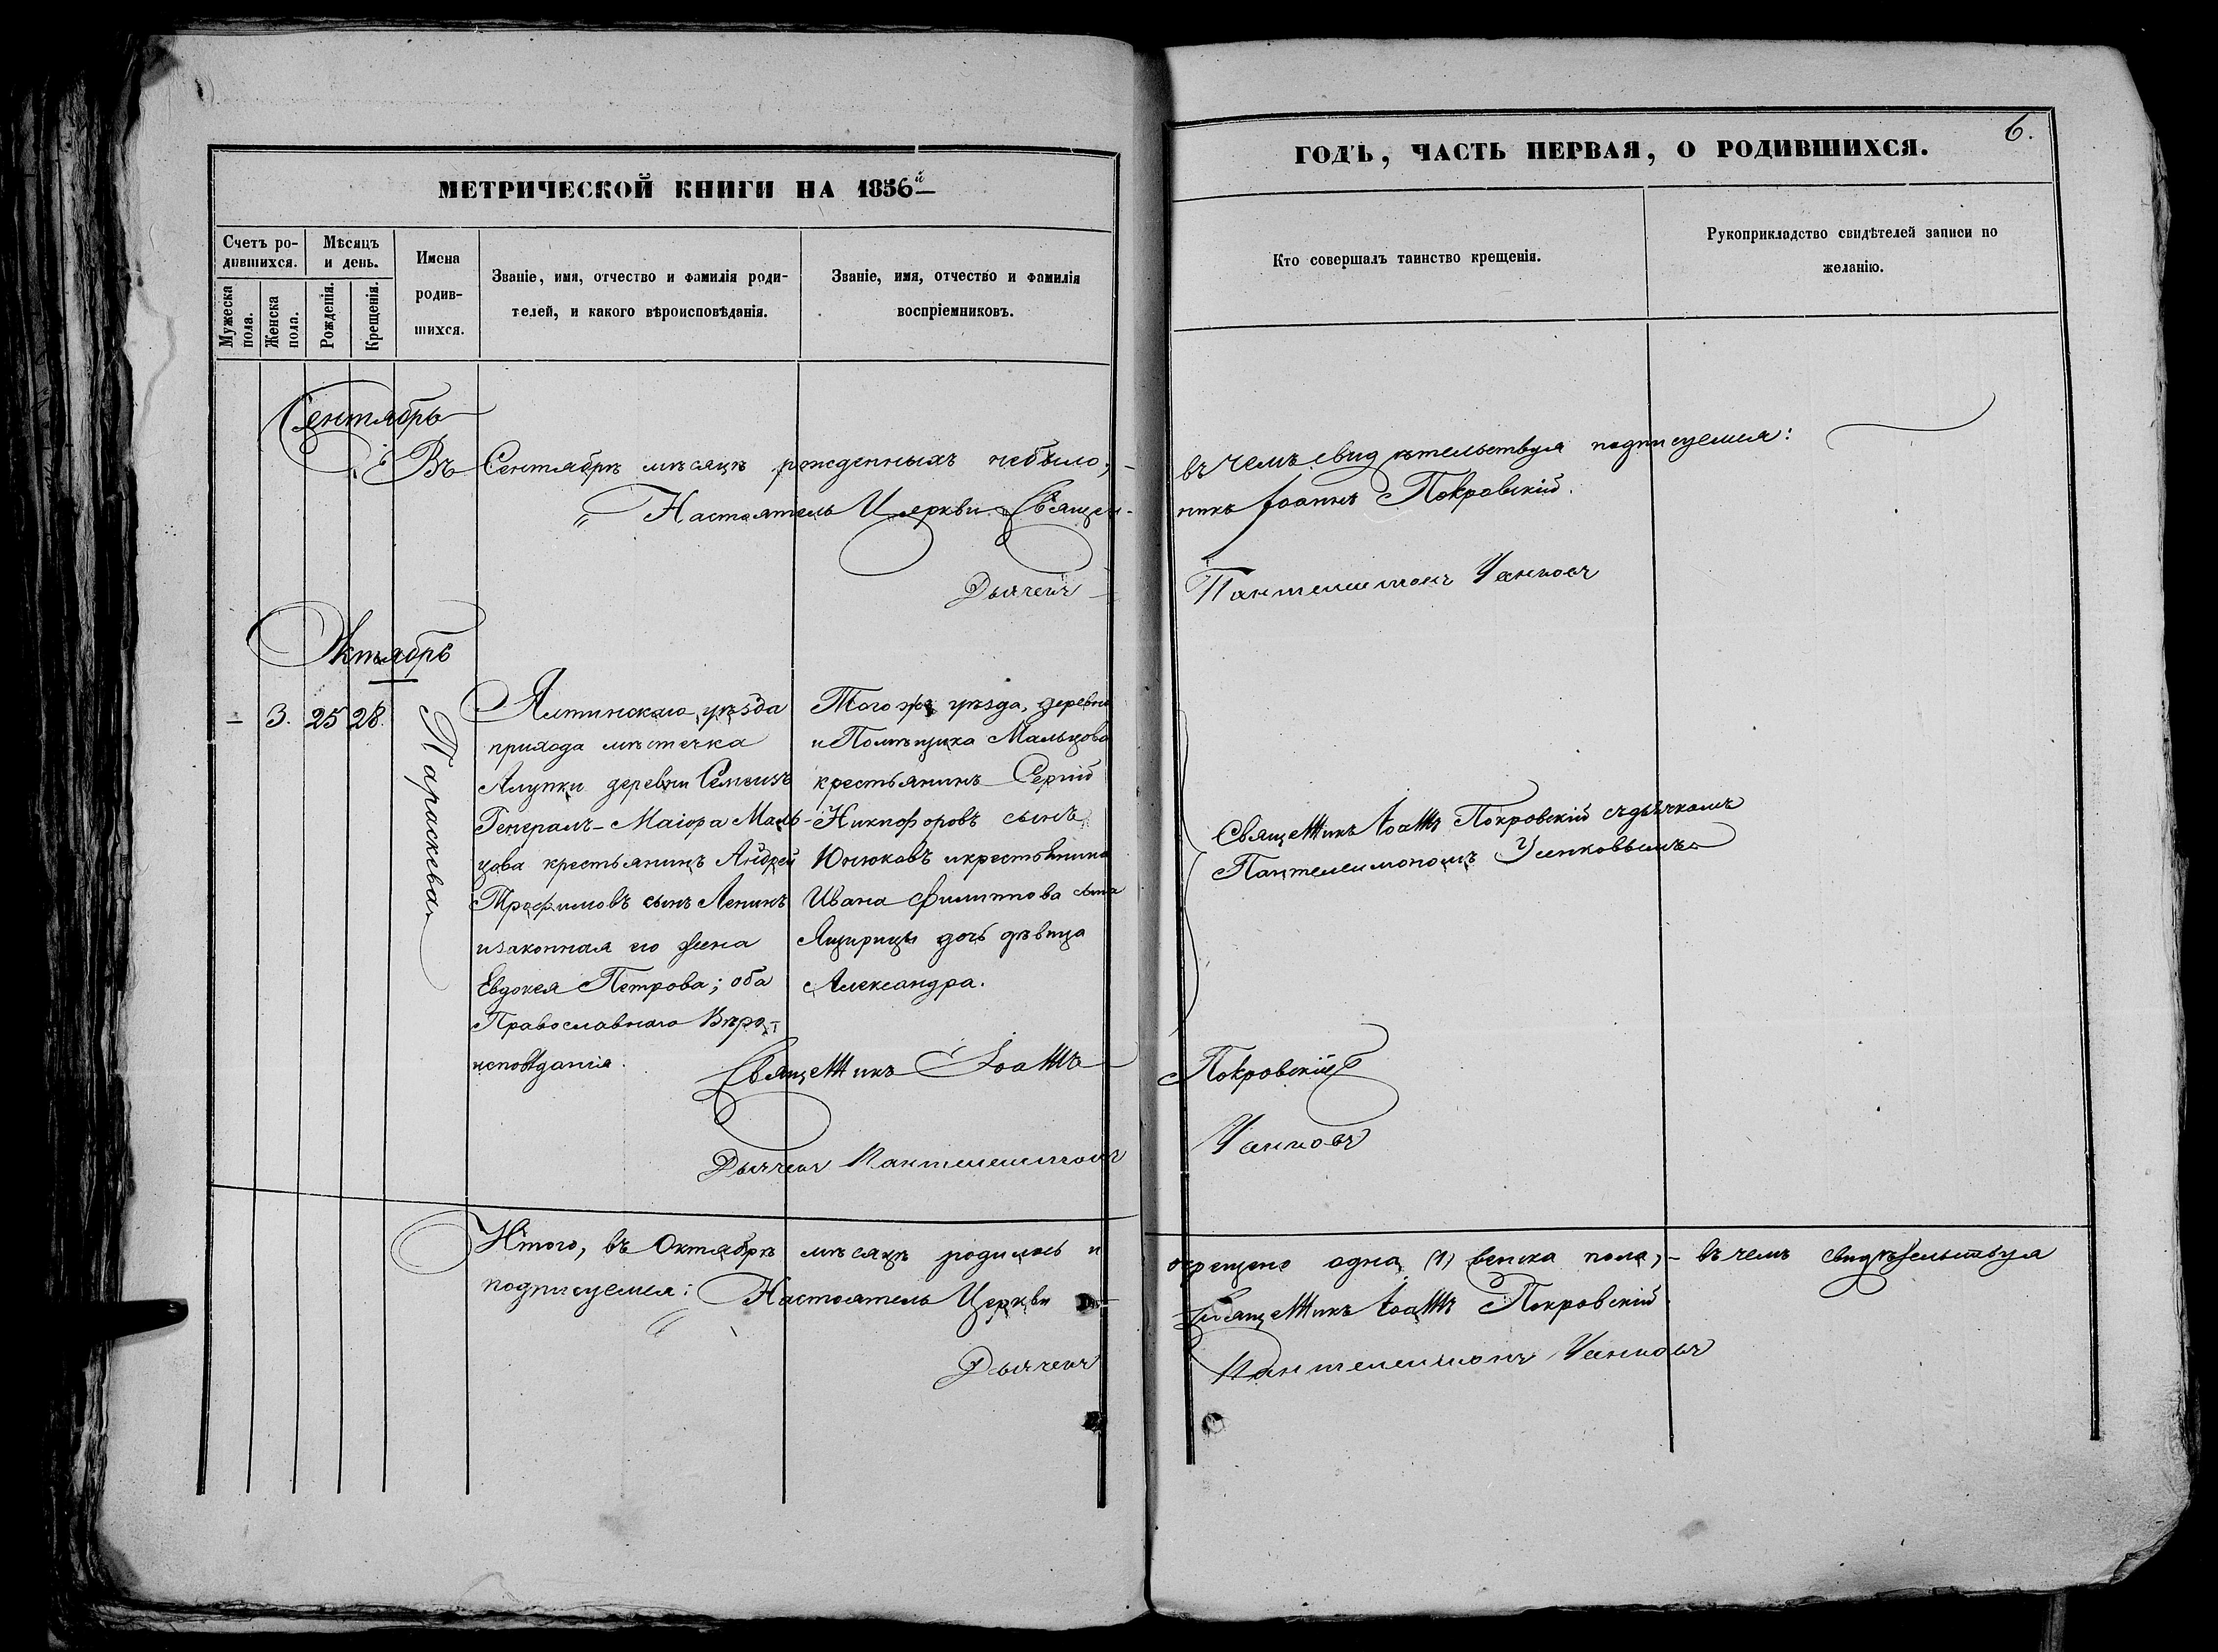 МЕТРИЧЕСКОЙ КНИГИ НА 1856й
Счетъ ро-
дившихся.
Мѣсяцъ
и день.
Мужеска
пола.
Женска
пола.
Рожденія.
Крещенія.
Имена
родив-
шихся.
Званіе, имя, отчество и фамилія роди-
телей, и какого вѣроисповѣданія.
Званіе, имя, отчество и фамилія
воспріемниковъ.
Сентябрь
Въ Сентябрѣ мѣсяцѣ рожденныхъ небыло,-
Настоятель Церкви Священ-
Дьячекъ
Октябрь
- 3. 25 28.
Параскева
Ялтинскаго уѣзда
прихода мѣстечка
Алупки деревни Симеизъ
Генералъ-Маіора Маль-
цова крестьянинъ Андрей
Трофимовъ сынъ Ленинъ
изаконная его жена
Евдокея Петрова; оба
Православнаго Вѣро-
исповѣданія.
Того же уѣзда, деревни
иПомѣщика Мальцова
крестьянинъ Сергій
Никифоровъ сынъ
икрестьянина
Ивана Филиппова сына
дочь дѣвица
Александра.
Священникъ Іоаннъ
Дьячекъ Пантелеимонъ
Итого, въ Октябрѣ мѣсяцѣ родилось и
подписуемся: Настоятель Церкви
Дьячекъ
6.
ГОДЪ, ЧАСТЬ ПЕРВАЯ, О РОДИВШИХСЯ.
Кто совершалъ таинство крещенія.
Рукоприкладство свидѣтелей записи по
желанію.
въ чемъ свидѣтельствуя подписуемся:
никъ Іоаннъ Покровскій.
Пантелеимонъ
Священникъ Іоаннъ Покровскій съдьячкомъ
Пантелеимономъ
Покровскій
окрещено одна (1) женска пола,- въ чемъ свидѣтельствуя
Священникъ Іоаннъ Покровскій
Пантелеимонъ